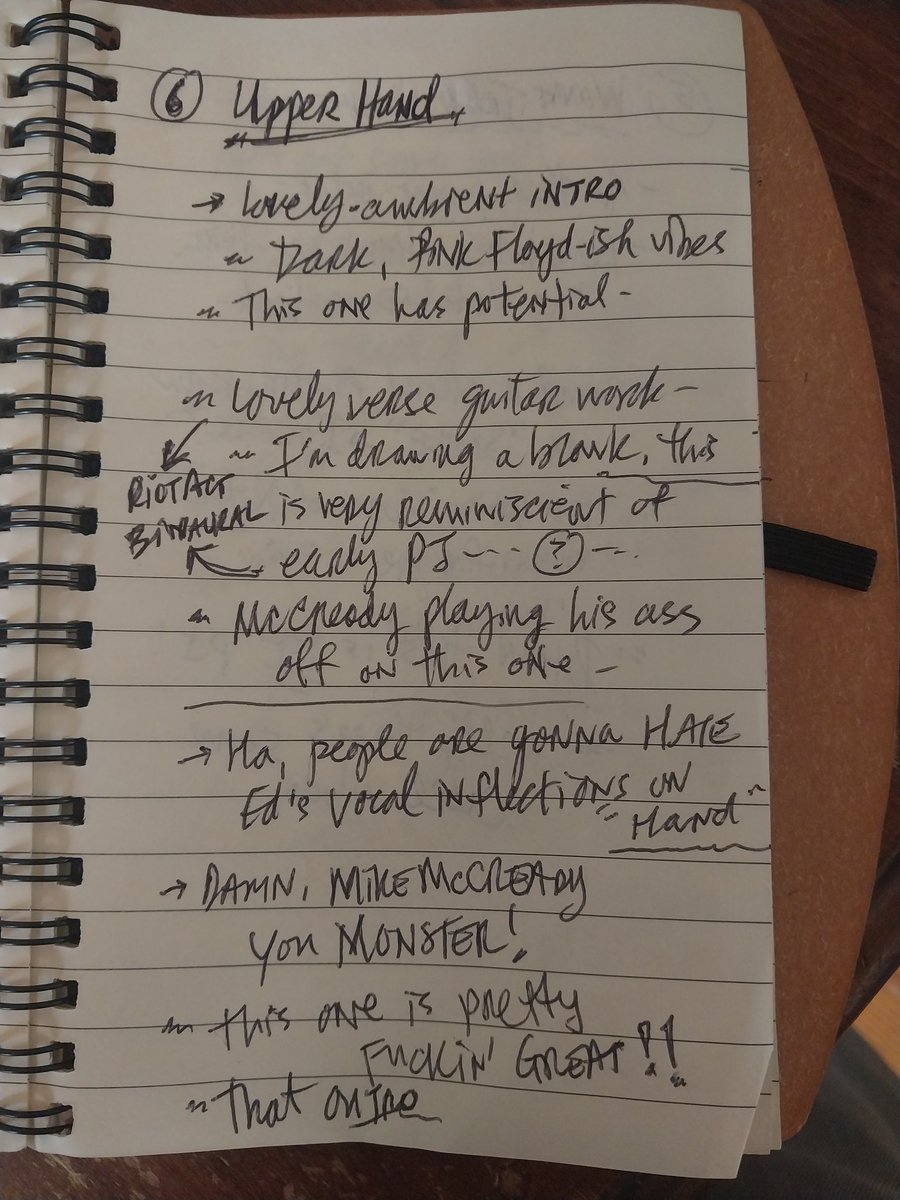 ⑥ Upper Hand.
→ Lovely-ambient INTRO
~ Dark, PINK Floyd-ish vibes
~ This one has potential-
~ Lovely verse guitar work-
~ I'm drawing a blank, this
RIOT ACT
BINAURAL
is very reminiscient of
early PJ--- ? --.
~ McCready playing his ass
off on this one -
→ Ha, people are gonna HATE
Ed's vocal inflections on
"Hand"
→ DAMN, MIKE McCREADY
you MONSTER!
~ this one is pretty
FUCKIN' GREAT!!
~ That